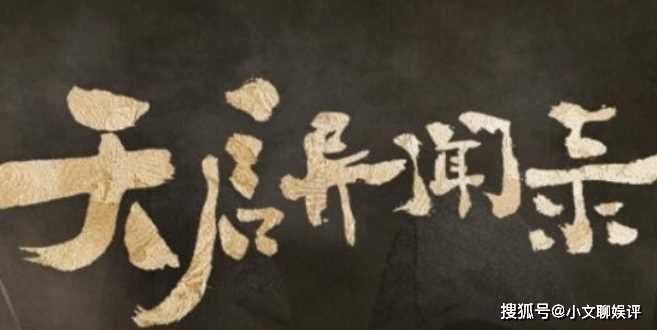 天启异闻录
搜狐号@小文聊娱评